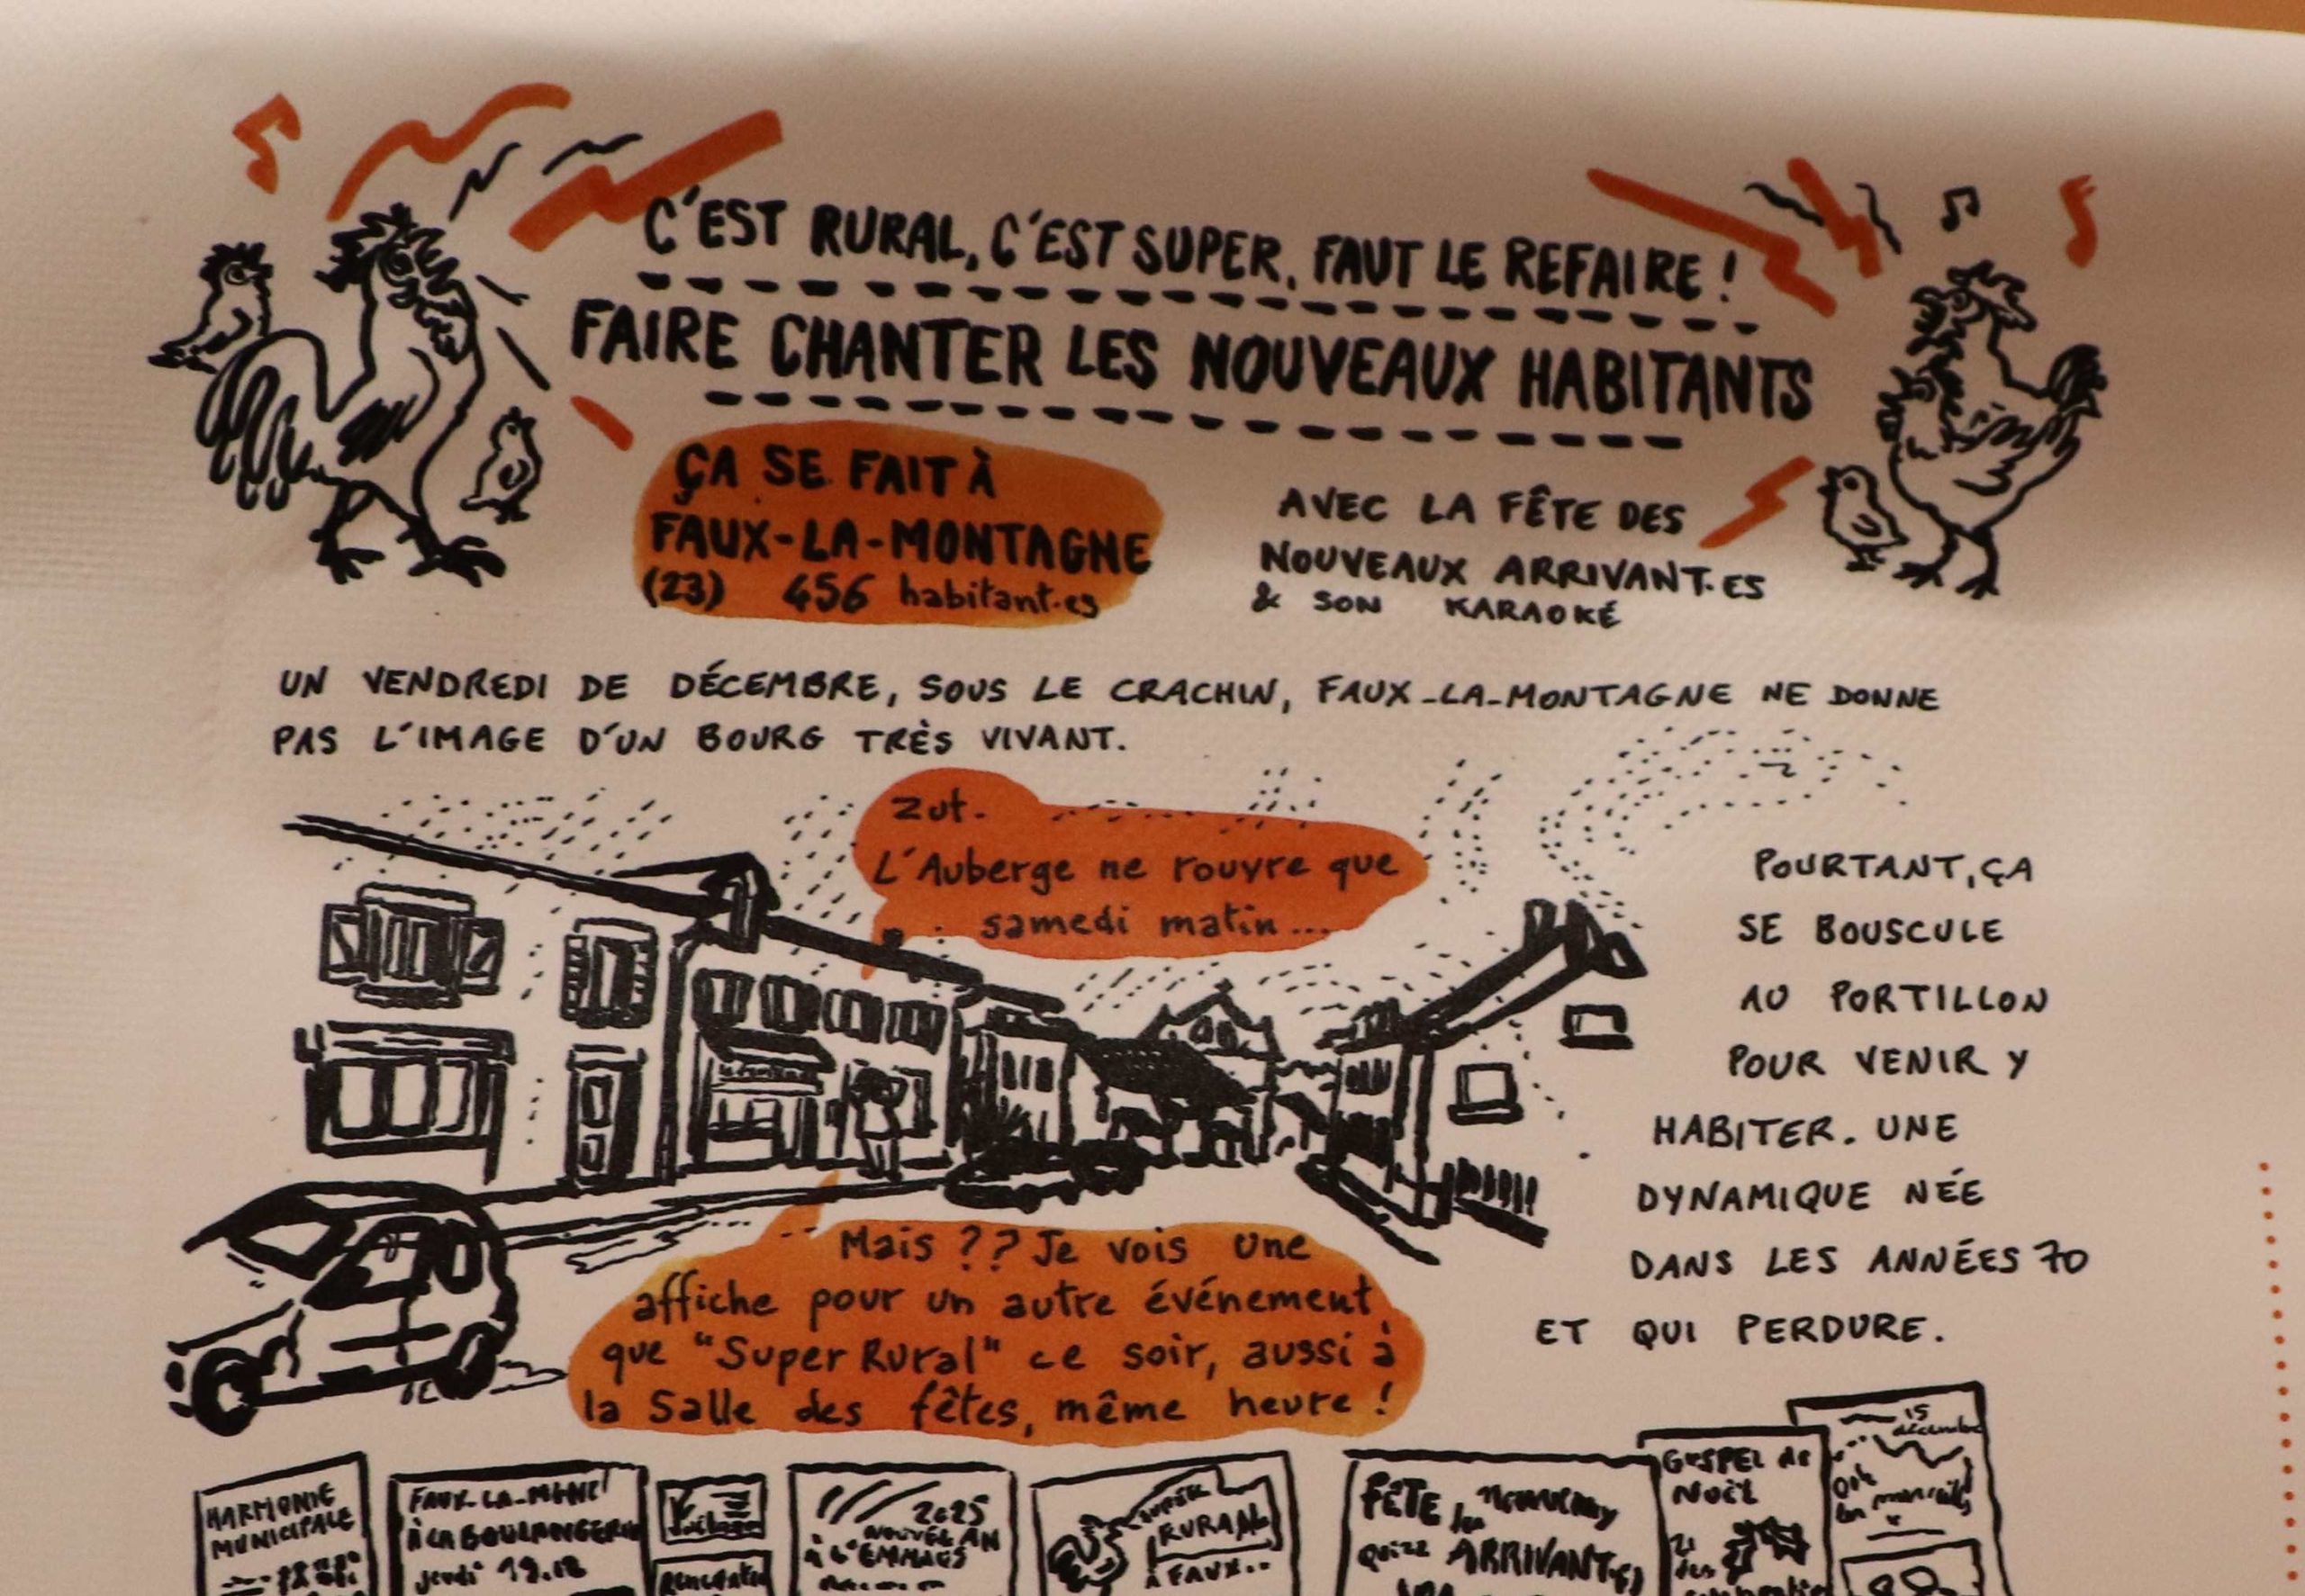 C'EST RURAL, C'EST SUPER, FAUT LE REFAIRE !
FAIRE CHANTER LES NOUVEAUX HABITANTS
ÇA SE FAIT À
FAUX-LA-MONTAGNE
(23) 456 habitant·es
AVEC LA FÊTE DES
NOUVEAUX ARRIVANT·ES
& SON KARAOKÉ
UN VENDREDI DE DÉCEMBRE, SOUS LE CRACHIN, FAUX-LA-MONTAGNE NE DONNE
PAS L'IMAGE D'UN BOURG TRÈS VIVANT.
Zut.
L'Auberge ne rouvre que
samedi matin...
POURTANT, ÇA
SE BOUSCULE
AU PORTILLON
POUR VENIR Y
HABITER. UNE
DYNAMIQUE NÉE
DANS LES ANNÉES 70
ET QUI PERDURE.
Mais ?? Je vois une
affiche pour un autre événement
que "Super Rural" ce soir, aussi à
la Salle des fêtes, même heure !
HARMONIE
MUNICIPALE
FAUX-LA-MONT
À LA BOULANGERIE
jeudi 19.12
2025
NOUVEL AN
SUPER
RURAL
À FAUX...
FÊTE
ARRIVANT·ES
GOSPEL de
Noël
15
décembre